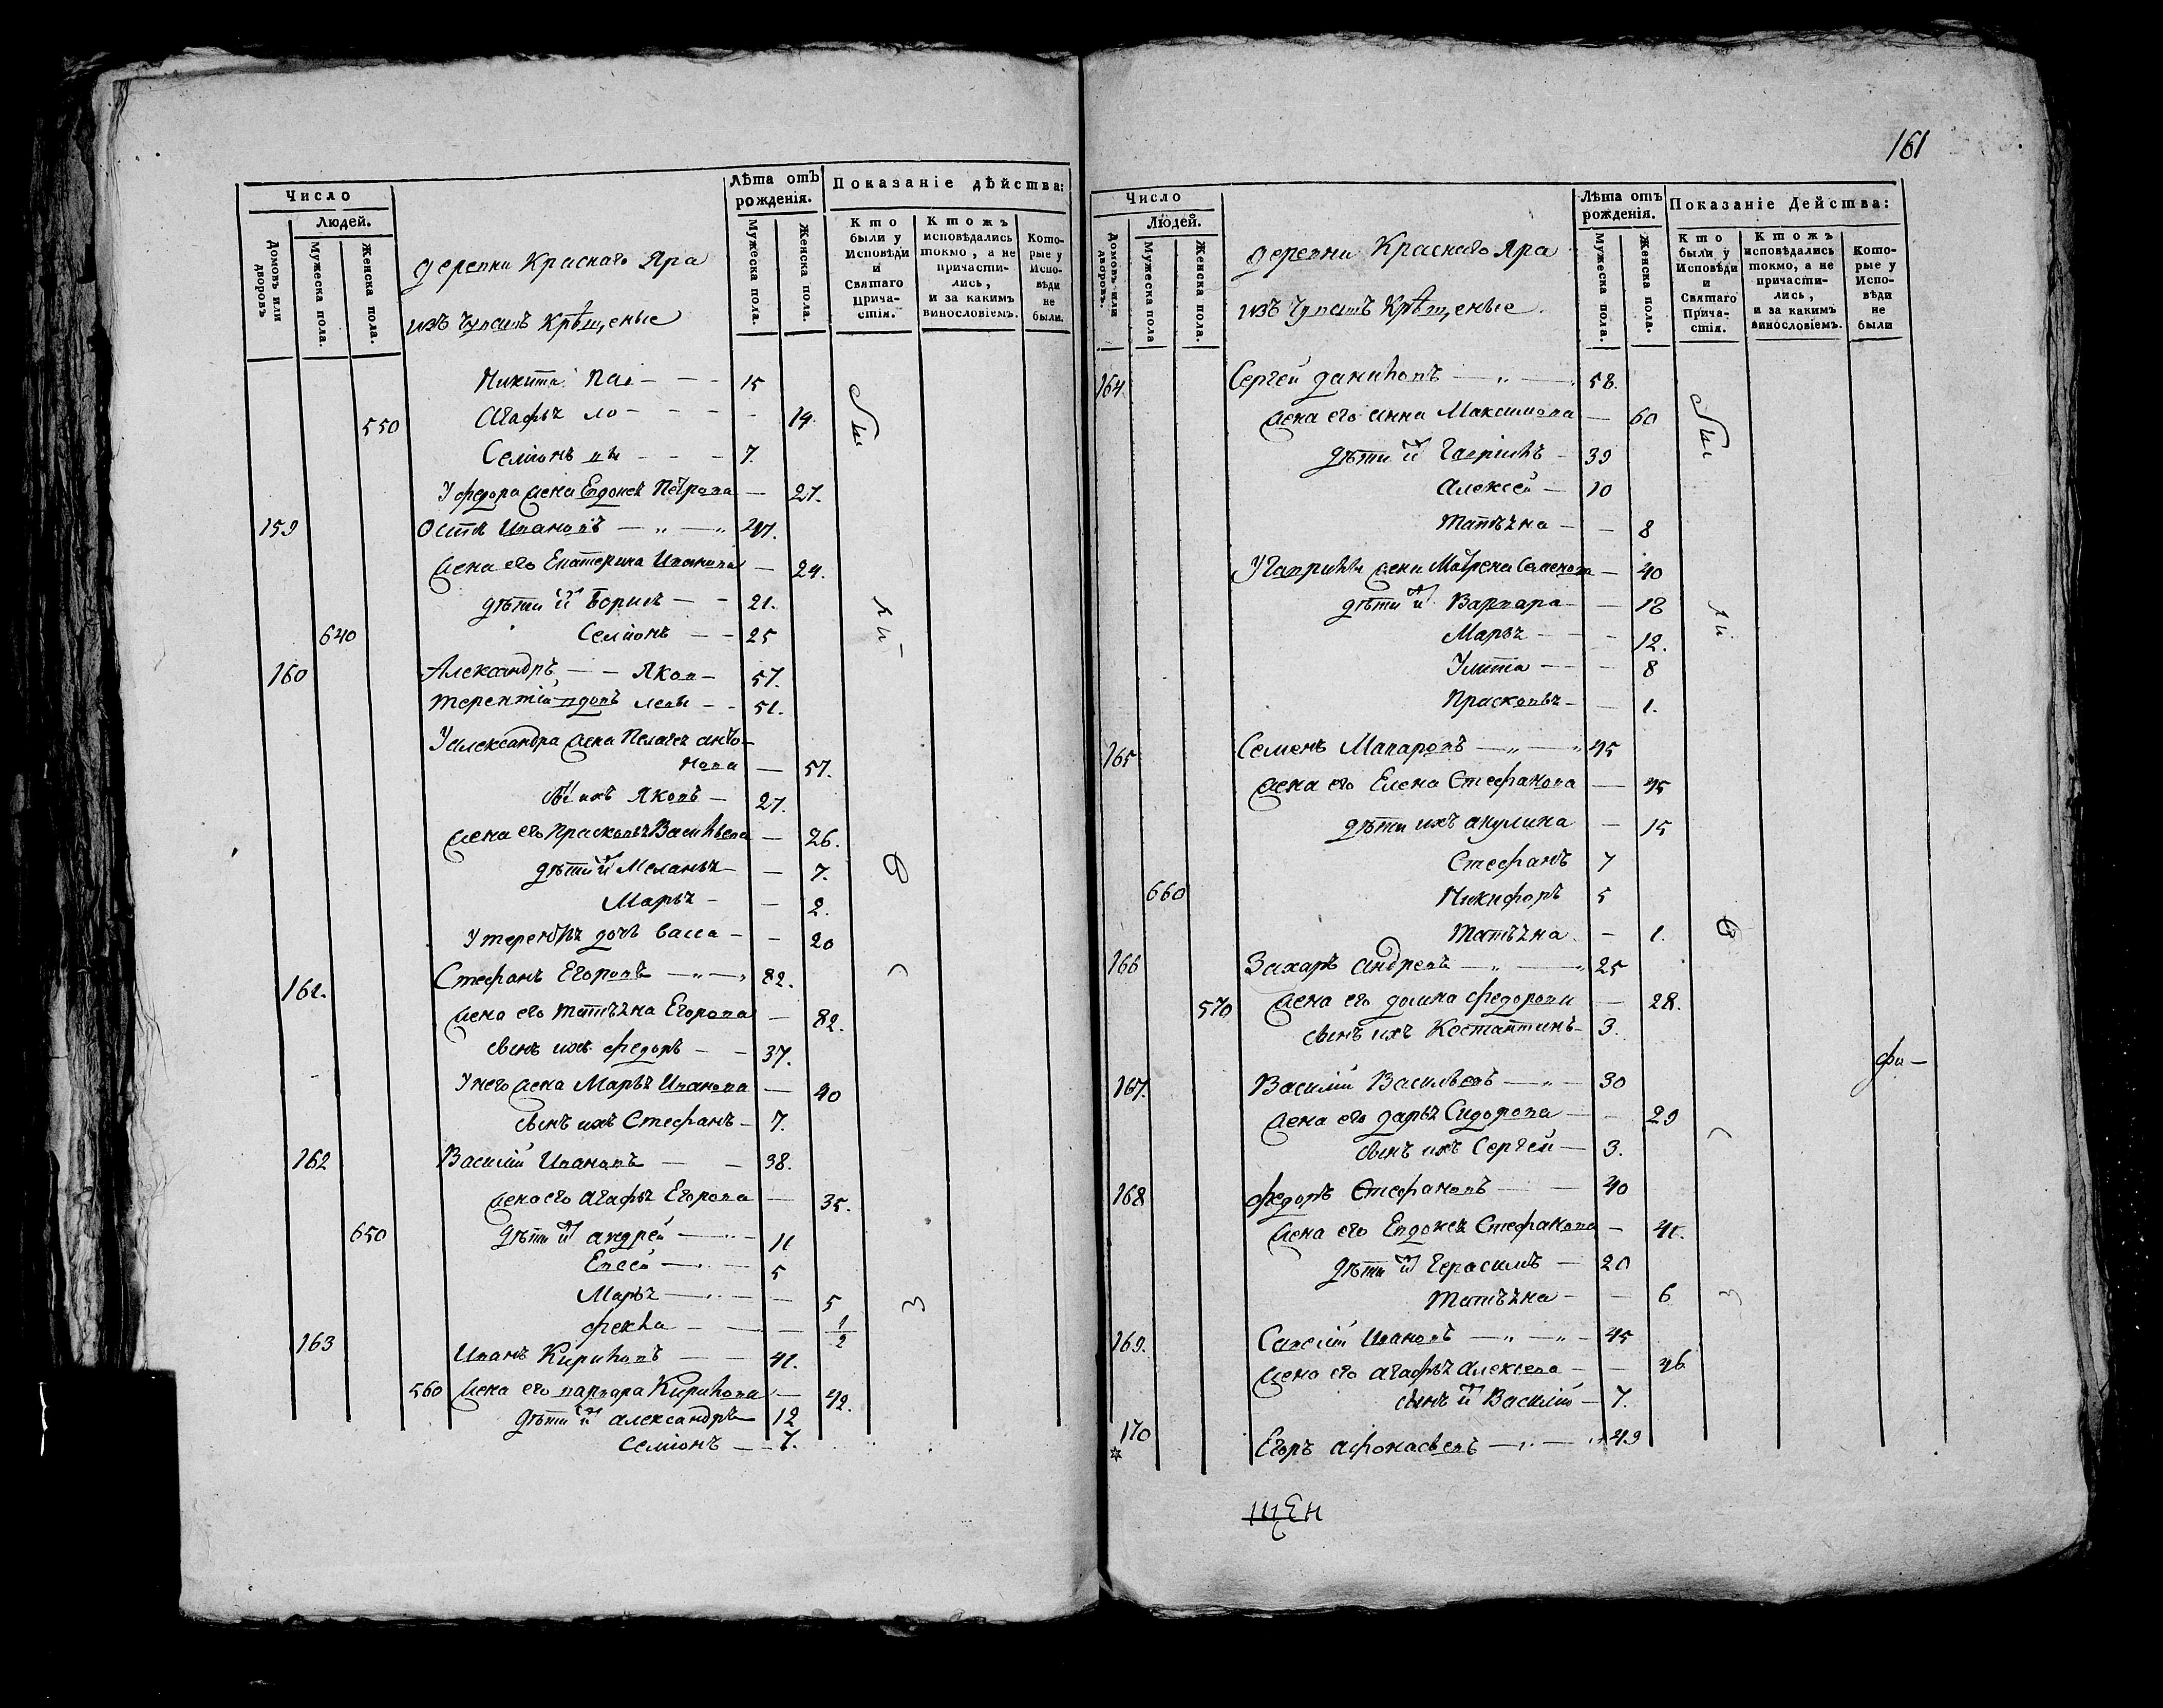 Число
Людей.
Домовъ или дворовъ
Мужеска пола.
Женска пола.
деревни Краснаго Яра
изъ Чувашъ Крѣщеные
Лѣта отъ рожденія.
Мужеска пола.
Женска пола.
Показаніе дѣйства:
Кто были у Исповѣди и Святаго Причастія.
Ктожъ исповѣдались токмо, а не причастились, и за какимъ винословіемъ.
Которые у Исповѣди не были.
Никита 15
550 Агафья 14.
Семіонъ 7.
У федора жена Евдокея Петрова — 27.
159 Ивановъ
жена его Екатерина Иванова — 24.
дѣти Борисъ — 21.
640 Семіонъ — 25
160 Александръ — Яков — 57.
терентій 51.
У александра жена Пелагея анто-
нова — 57.
Яковъ — 27.
жена его Прасковья Васильева — 26.
дѣти Меланья — 7.
Марья — 2.
дочь Васса — 20
161. Стефанъ Егоровъ — 82.
жена его татьяна Егорова — 82.
сынъ ихъ федоръ — 37.
У него жена Марья Иванова — 40
сынъ ихъ Стефанъ — 7.
162 Василій Ивановъ — 38.
жена его агафья Егорова — 35.
650 дѣти андрей — 11
Евсей — 5
Марья — 5
фекла — 1/2
163 Иванъ Кириловъ — 41.
560 жена его варвара Кирилова — 42.
дѣти александръ 12
семіонъ — 7.
161
Число
Людей.
Домовъ или дворовъ.
Мужеска пола
Женска пола.
деревни Краснаго Яра
изъ Чувашъ Крѣщеные.
Лѣта отъ рожденія.
Мужеска пола.
Женска пола.
Показаніе Действа:
Кто были у Исповѣди и Святаго Причастія.
Ктожъ исповѣдались токмо, а не причастились, и за какимъ винословіемъ.
Которые у Исповѣди не были
164. Сергей даниловъ — 58.
жена его анна Максимова — 60
дѣти Гаврилъ — 39
Алексей — 10
татьяна — 8
У Гаврилы жена Матрена Семенова — 40
дѣти Варвара — 18
Марья — 12.
Улита — 8
Прасковья — 1.
165 Семенъ Макаровъ — 45
жена его Елена Стефанова — 45
дѣти ихъ акулина — 15
Стефанъ 7
660 Никифоръ 5
татьяна — 1.
166 Захаръ андреевъ — 25
570 жена его домна федорова — 28.
сынъ ихъ Костантинъ — 3.
167. Василій Васильевъ — 30
жена его дарья Сидорова — 29
сынъ ихъ Сергей — 3.
168 федоръ Стефановъ — 40
жена его Евдокея Стефанова — 41.
дѣти Герасимъ — 20
татьяна — 6
169. Савелій Ивановъ — 45
жена его агафья алексеева — 46
сынъ Василій — 7.
170 Егоръ афонасьевъ — 49